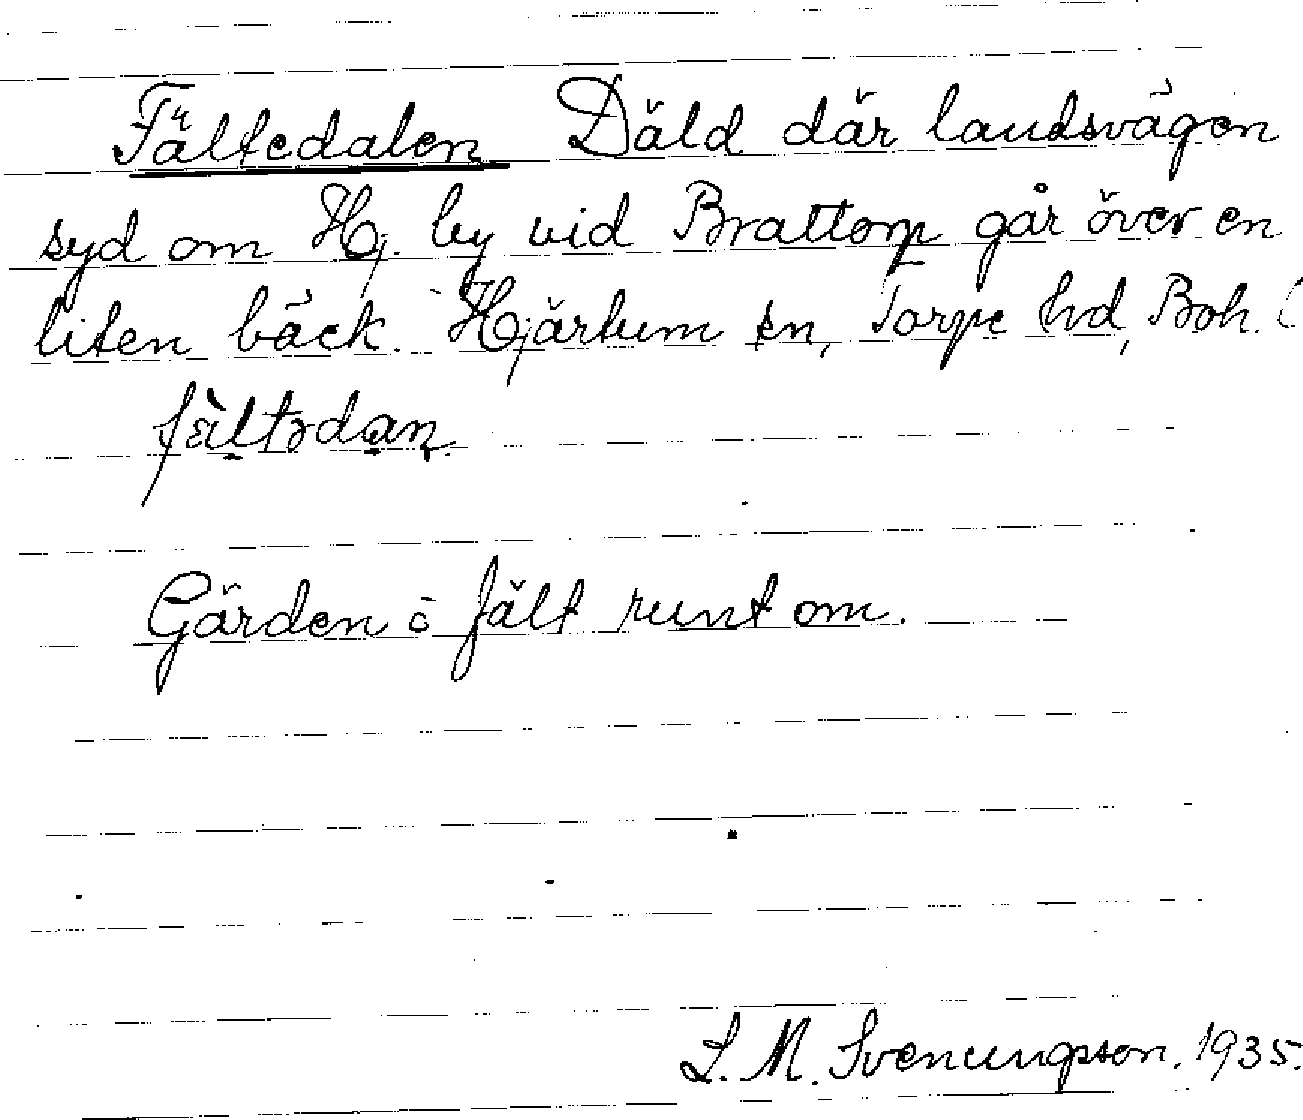 Fältedalen Däld där landsvägen
syd om Hj. by vid Brattorp går över en
liten bäck. Hjärtum sn, Torpe hd, Boh.
fältədan.
Gärden å fält runt om.
S. M. Svenungsson. 1935.